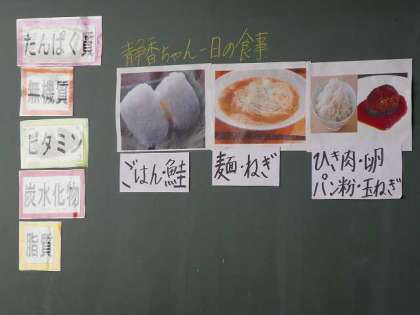 静香ちゃん一日の食事
たんぱく質
無機質
ビタミン
炭水化物
脂質
ごはん・鮭
麺・ねぎ
ひき肉・卵
パン粉・玉ねぎ